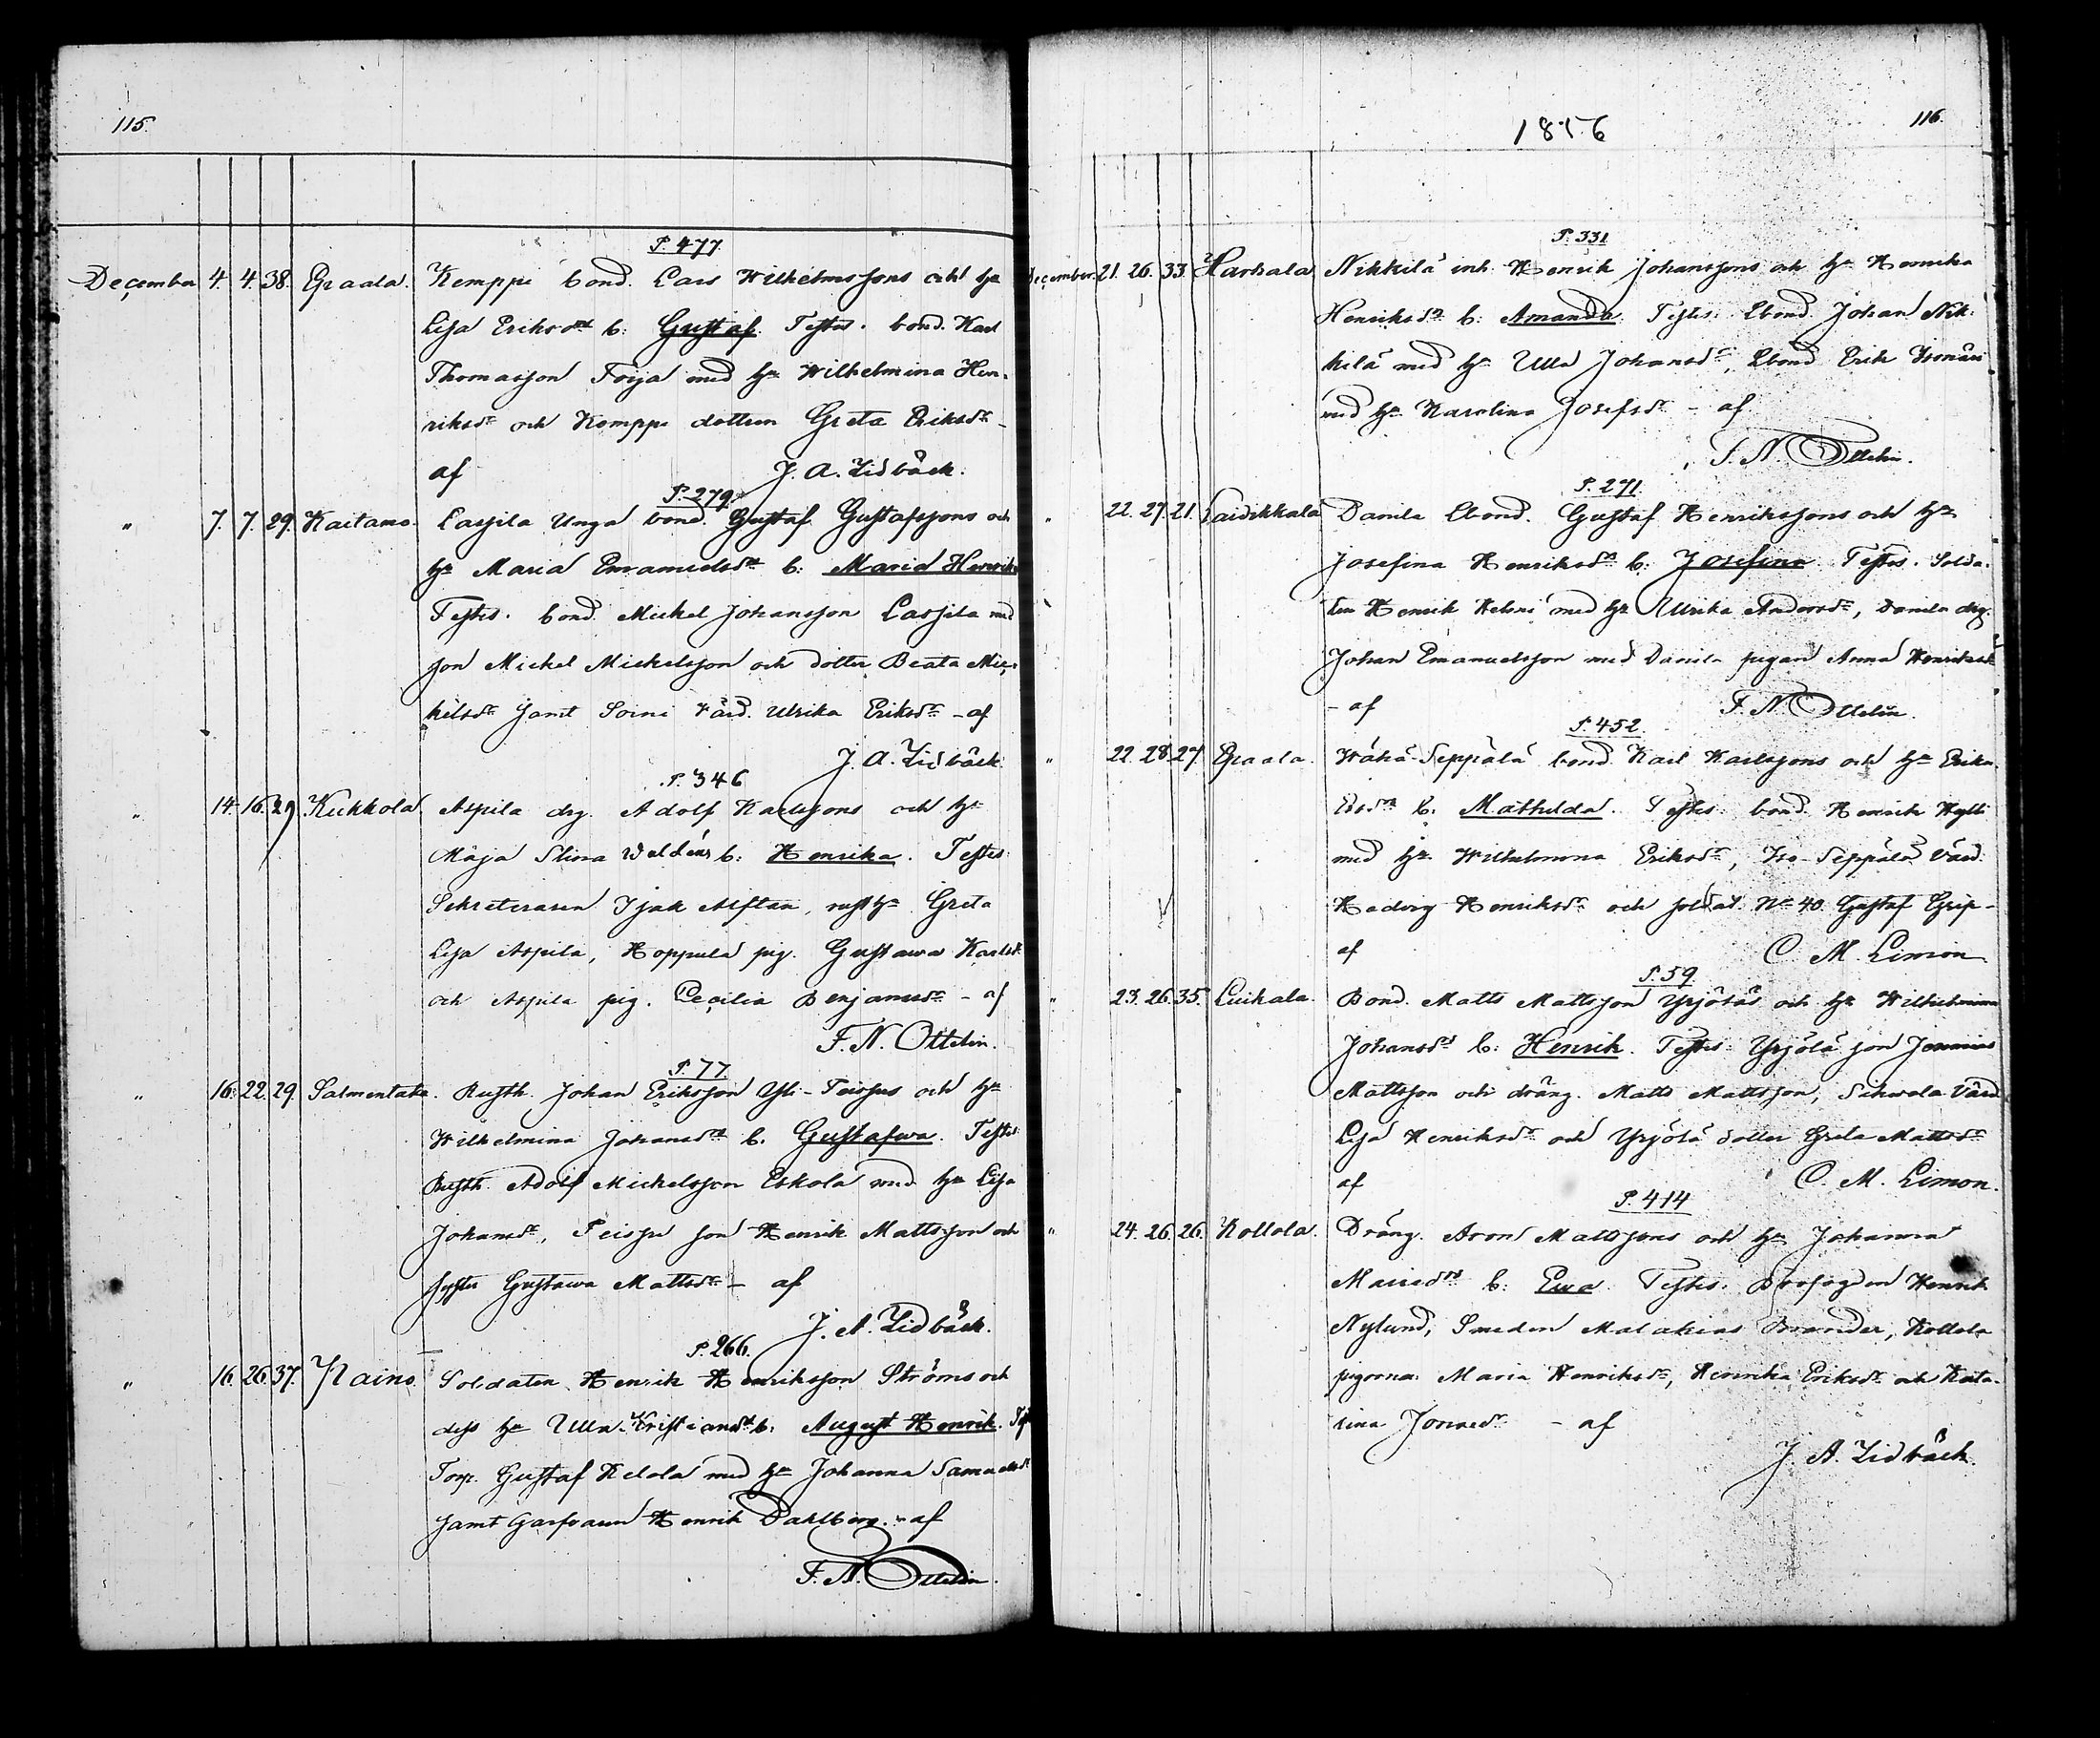 115.
P. 477
December 4. 4. 38. Graala. Kemppi bond. Lars Wilhelmssons och hu
Lisa Eriksdr b: Gustaf. Testes. bond. Karl
Thomasson Torja med hu Wilhelmina Hen-
riksdr och Kemppi dottren Greta Eriksdr -
af J. A. Lidbäck.
P. 279.
" 7. 7. 29. Kaitamo. Lassila Unga bond. Gustaf Gustafssons och
hu Maria Emanuelsdr b: Maria Henrika
Testes. bond. Mickel Johansson Lassila med
son Mickel Mickelsson och dotter Beata Mic-
kelsdr samt Soini värd. Ulrika Eriksdr - af
J. A. Lidbäck.
P. 346
" 14. 16. 29 Kukkola. Aspila drg. Adolf Karlssons och hu
Maja Stina Weldéns b: Henrika. Testes:
Sekreteraren Isak Alftan, rusthu Greta
Lisa Aspila, Hoppula pig. Gustawa Karlsdr
och Aspila pig. Cecilia Benjamsdr - af
F. N. Ottelin.
P. 77.
" 16. 22. 29. Salmentaka. Rusth. Johan Eriksson Yli-Teissus och hu
Wilhelmina Johansdr b. Gustafwa. Testes:
Rusth. Adolf Mickelsson Eskola med hu Lisa
Johansdr, Teissu son Henrik Mattsson och
syster Gustawa Mattsdr - af
J. A. Lidbäck.
P. 266.
" 16. 26. 37. Naino. Soldaten Henrik Henriksson Ströms och
dess hu Ulla Kristiansdr b: August Henrik. Test
Torp. Gustaf Kelola med hu Johanna Samuelsdr
samt Garfvaren Henrik Dahlberg. - af
F. N. Ottelin.
1876
116.
P. 331
December. 21. 26. 33. Harhala Nikkilä inh. Henrik Johanssons och hu Henrika
Henriksdr b: Amanda. Testes: Ebond. Johan Nik-
kilä med hu Ulla Johansdr, Ebond Erik
med hu Karolina Josefsdr - af
F. N. Ottelin.
P. 271.
" 22. 27. 21. Laidikkala Danila Ebond. Gustaf Henrikssons och hu
Josefina Henriksdr b: Josefina. Testes. Solda-
ten Henrik Helmi med hu Ulrika Andersdr, Danila drg.
Johan Emanuelsson med Danila pigan Anna Henriksdr
- af F. N. Ottelin.
P. 452.
" 22. 28. 27. Graala. Wähä-Seppälä bond. Karl Karlssons och hu Erika
Edsdr b: Mathilda. Testes: bond. Henrik Kylli
med hu Wilhelmina Eriksdr, Iso-Seppälä värd.
Hedvig Henriksdr och soldat No 40 Gustaf Grip -
af C. M. Limon
P. 59
" 23. 26. 35. Luikala. Bond. Matts Mattsson Yrjöläs och hu Wilhelmina
Johansdr b: Henrik. Testes: Yrjölä son Jeremias
Mattsson och dräng. Matts Mattsson, Sihvola Värd.
Lisa Henriksdr och Yrjölä dotter Greta Mattsdr
af C. M. Limon.
P. 414
" 24. 26. 26. Kollola. Dräng. Aron Mattssons och hu Johanna
Mariasdr b: Ewa Testes. Brofogden Henrik
Nylund, Smeden Malakias Brander, Kollola
pigorna Maria Henriksdr, Henrika Eriksdr och Kata-
rina Jonasdr - af
J. A. Lidbäck.